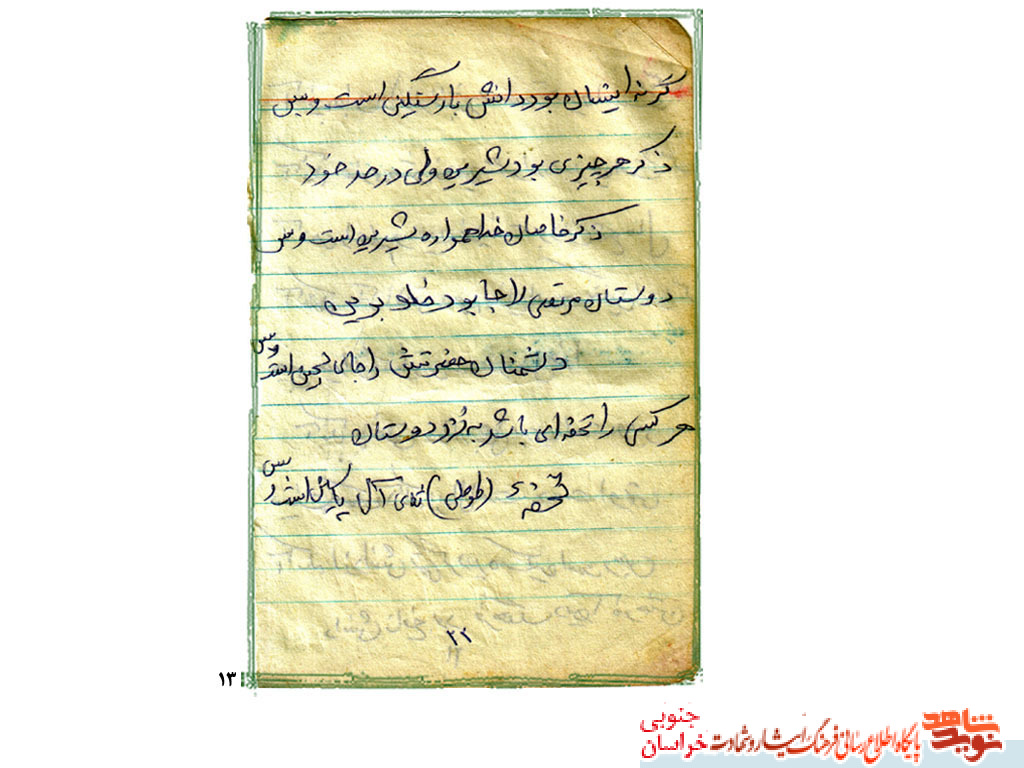 گر نه ایشان بود دانش بار سنگینی است و بس
ذکر هر چیزی بود شیرین ولی در حد خود
ذکر خاصان خدا همواره شیرین است و بس
دوستان مرتضی را جا بود خلد برین
دشمنان حضرتش را جای سجین است و بس
هر کسی را تحفه ای باشد به نزد دوستان
تحفهٔ (طوطی) ثنای آل یاسین است و بس
۲۲
۱۳
نوید شاهد
پایگاه اطلاع رسانی فرهنگ ایثار و شهادت
خراسان جنوبی